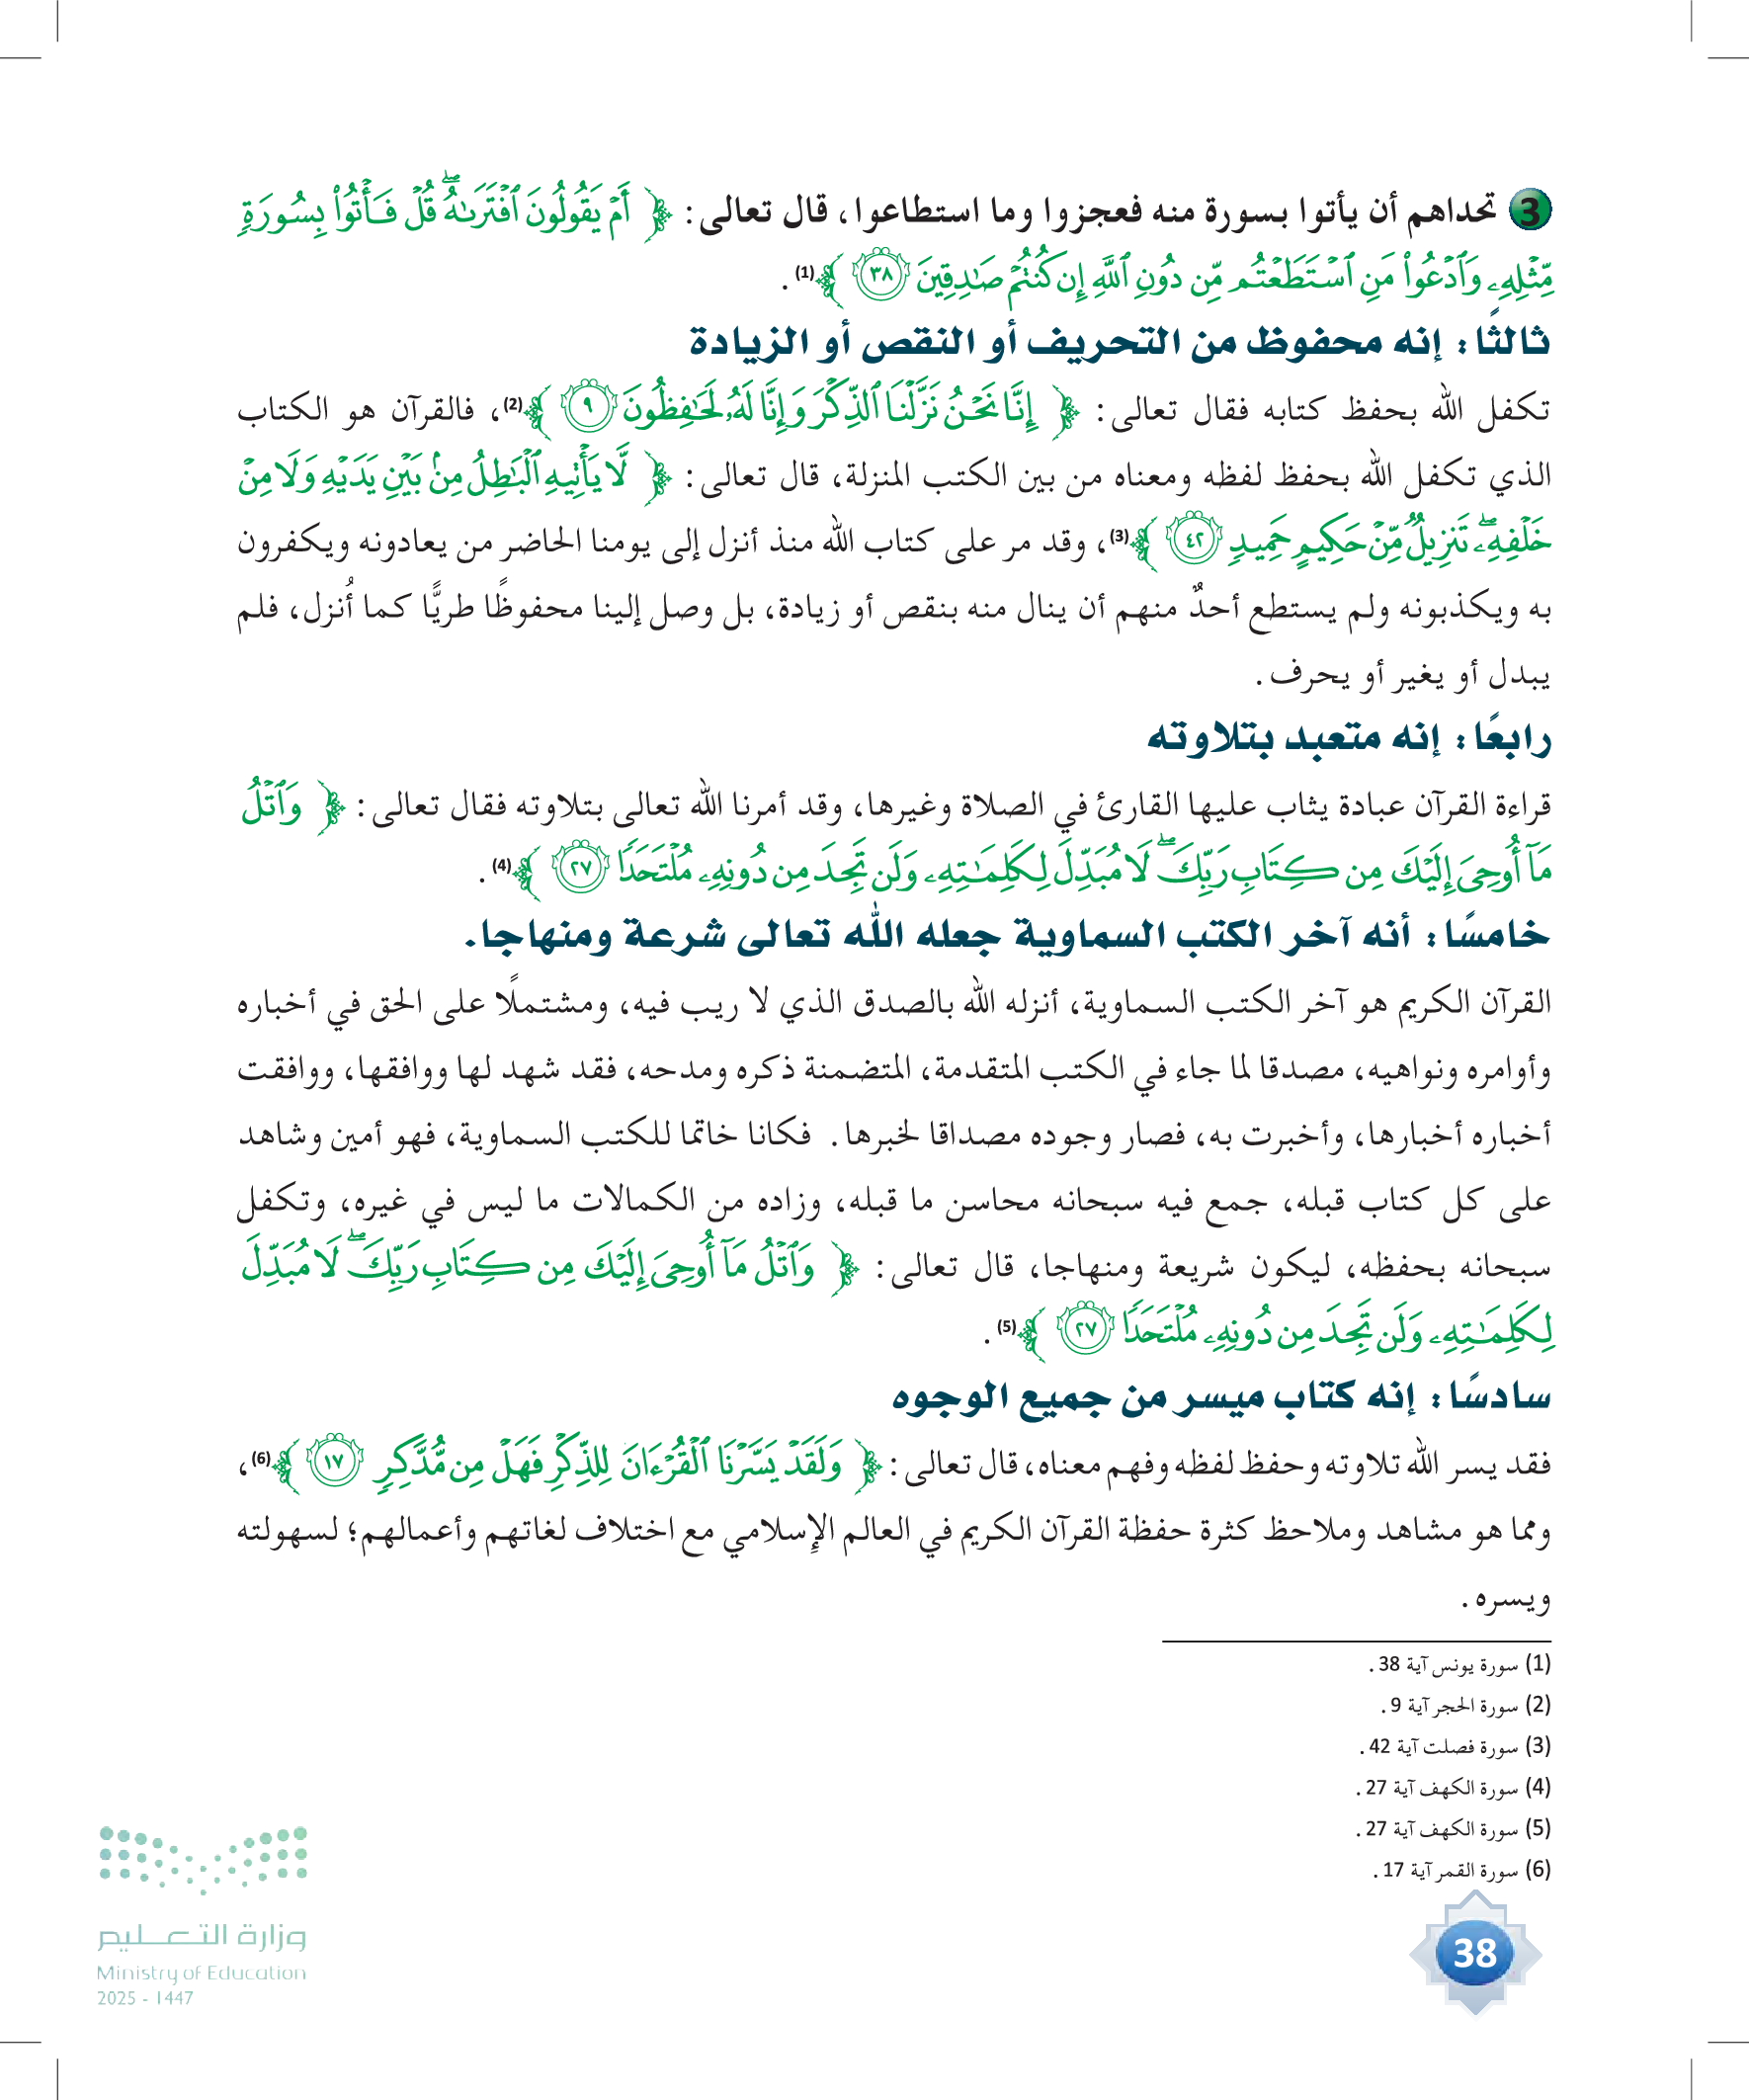 3 تحداهم أن يأتوا بسورة منه فعجزوا وما استطاعوا، قال تعالى: ﴿ أَمۡ يَقُولُونَ ٱفۡتَرَىٰهُۖ قُلۡ فَأۡتُواْ بِسُورَةٖ
مِّثۡلِهِۦ وَٱدۡعُواْ مَنِ ٱسۡتَطَعۡتُم مِّن دُونِ ٱللَّهِ إِن كُنتُمۡ صَٰدِقِينَ ٣٨ ﴾(1).
ثالثًا: إنه محفوظ من التحريف أو النقص أو الزيادة
تكفل الله بحفظ كتابه فقال تعالى: ﴿ إِنَّا نَحۡنُ نَزَّلۡنَا ٱلذِّكۡرَ وَإِنَّا لَهُۥ لَحَٰفِظُونَ ٩ ﴾(2)، فالقرآن هو الكتاب
الذي تكفل الله بحفظ لفظه ومعناه من بين الكتب المنزلة، قال تعالى: ﴿ لَّا يَأۡتِيهِ ٱلۡبَٰطِلُ مِنۢ بَيۡنِ يَدَيۡهِ وَلَا مِنۡ
خَلۡفِهِۦۖ تَنزِيلٞ مِّنۡ حَكِيمٍ حَمِيدٖ ٤٢ ﴾(3)، وقد مر على كتاب الله منذ أنزل إلى يومنا الحاضر من يعادونه ويكفرون
به ويكذبونه ولم يستطع أحدٌ منهم أن ينال منه بنقص أو زيادة، بل وصل إلينا محفوظًا طريًّا كما أُنزل، فلم
يبدل أو يغير أو يحرف.
رابعًا: إنه متعبد بتلاوته
قراءة القرآن عبادة يثاب عليها القارئ في الصلاة وغيرها، وقد أمرنا الله تعالى بتلاوته فقال تعالى: ﴿ وَٱتۡلُ
مَآ أُوحِيَ إِلَيۡكَ مِن كِتَابِ رَبِّكَۖ لَا مُبَدِّلَ لِكَلِمَٰتِهِۦ وَلَن تَجِدَ مِن دُونِهِۦ مُلۡتَحَدٗا ٢٧ ﴾(4).
خامسًا: أنه آخر الكتب السماوية جعله الله تعالى شرعة ومنهاجا.
القرآن الكريم هو آخر الكتب السماوية، أنزله الله بالصدق الذي لا ريب فيه، ومشتملًا على الحق في أخباره
وأوامره ونواهيه، مصدقا لما جاء في الكتب المتقدمة، المتضمنة ذكره ومدحه، فقد شهد لها ووافقها، ووافقت
أخباره أخبارها، وأخبرت به، فصار وجوده مصداقا لخبرها. فكانا خاتما للكتب السماوية، فهو أمين وشاهد
على كل كتاب قبله، جمع فيه سبحانه محاسن ما قبله، وزاده من الكمالات ما ليس في غيره، وتكفل
سبحانه بحفظه، ليكون شريعة ومنهاجا، قال تعالى: ﴿ وَٱتۡلُ مَآ أُوحِيَ إِلَيۡكَ مِن كِتَابِ رَبِّكَۖ لَا مُبَدِّلَ
لِكَلِمَٰتِهِۦ وَلَن تَجِدَ مِن دُونِهِۦ مُلۡتَحَدٗا ٢٧ ﴾(5).
سادسًا: إنه كتاب ميسر من جميع الوجوه
فقد يسر الله تلاوته وحفظ لفظه وفهم معناه، قال تعالى: ﴿ وَلَقَدۡ يَسَّرۡنَا ٱلۡقُرۡءَانَ لِلذِّكۡرِ فَهَلۡ مِن مُّدَّكِرٖ ١٧ ﴾(6)،
ومما هو مشاهد وملاحظ كثرة حفظة القرآن الكريم في العالم الإسلامي مع اختلاف لغاتهم وأعمالهم؛ لسهولته
ويسره.
(1) سورة يونس آية 38.
(2) سورة الحجر آية 9.
(3) سورة فصلت آية 42.
(4) سورة الكهف آية 27.
(5) سورة الكهف آية 27.
(6) سورة القمر آية 17.
وزارة التعليم
Ministry of Education
2025 - 1447
38